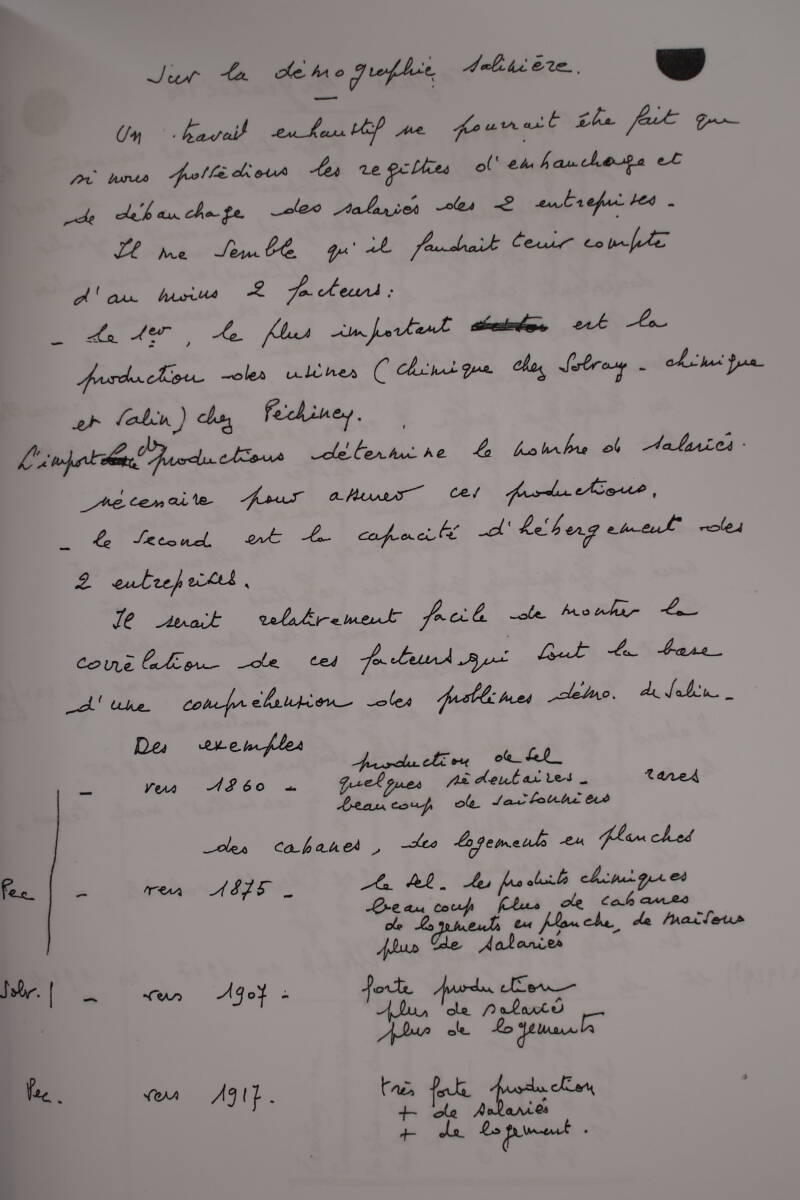 Sur la démographie salinière.
Un travail exhaustif ne pourrait être fait que
si nous possédions les registres d'embauchage et
de débauchage des salariés des 2 entreprises.
Il me semble qu'il faudrait tenir compte
d'au moins 2 facteurs :
- le 1er, le plus important est la
production des usines (chimique chez Solvay - chimique
et Salin) chez Péchiney.
L'import des productions détermine le nombre de salariés
nécessaire pour assurer ces productions.
- le second est la capacité d'hébergement des
2 entreprises.
Il serait relativement facile de montrer la
corrèlation de ces facteurs qui sont la base
d'une compréhension des problèmes démo. de Salin -
Des exemples
production de sel
- vers 1860 - quelques sédentaires - rares
beaucoup de saisonniers
des cabanes, des logements en planches
Pec - vers 1875 - le sel - les produits chimiques
beaucoup plus de cabanes
de logements en planche, de maisons
plus de salariés
Solv. - vers 1907 - forte production
plus de salarié
plus de logements
Pec. vers 1917. très forte production
+ de salariés
+ de logement.